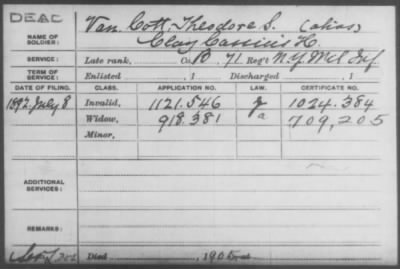 DEAD
NAME OF SOLDIER: Van Cott, Theodore S. (alias)
Clay Cassius H.
SERVICE: Late rank, Co. B 71 Reg't N.Y. Mil Inf
TERM OF SERVICE: Enlisted , 1 Discharged , 1
DATE OF FILING. CLASS. APPLICATION NO. LAW. CERTIFICATE NO.
1892 July 8 Invalid, 1121.546 g 1024.384
Widow, 918.381 a 709,205
Minor,
ADDITIONAL SERVICES:
REMARKS:
Died , 1905 at